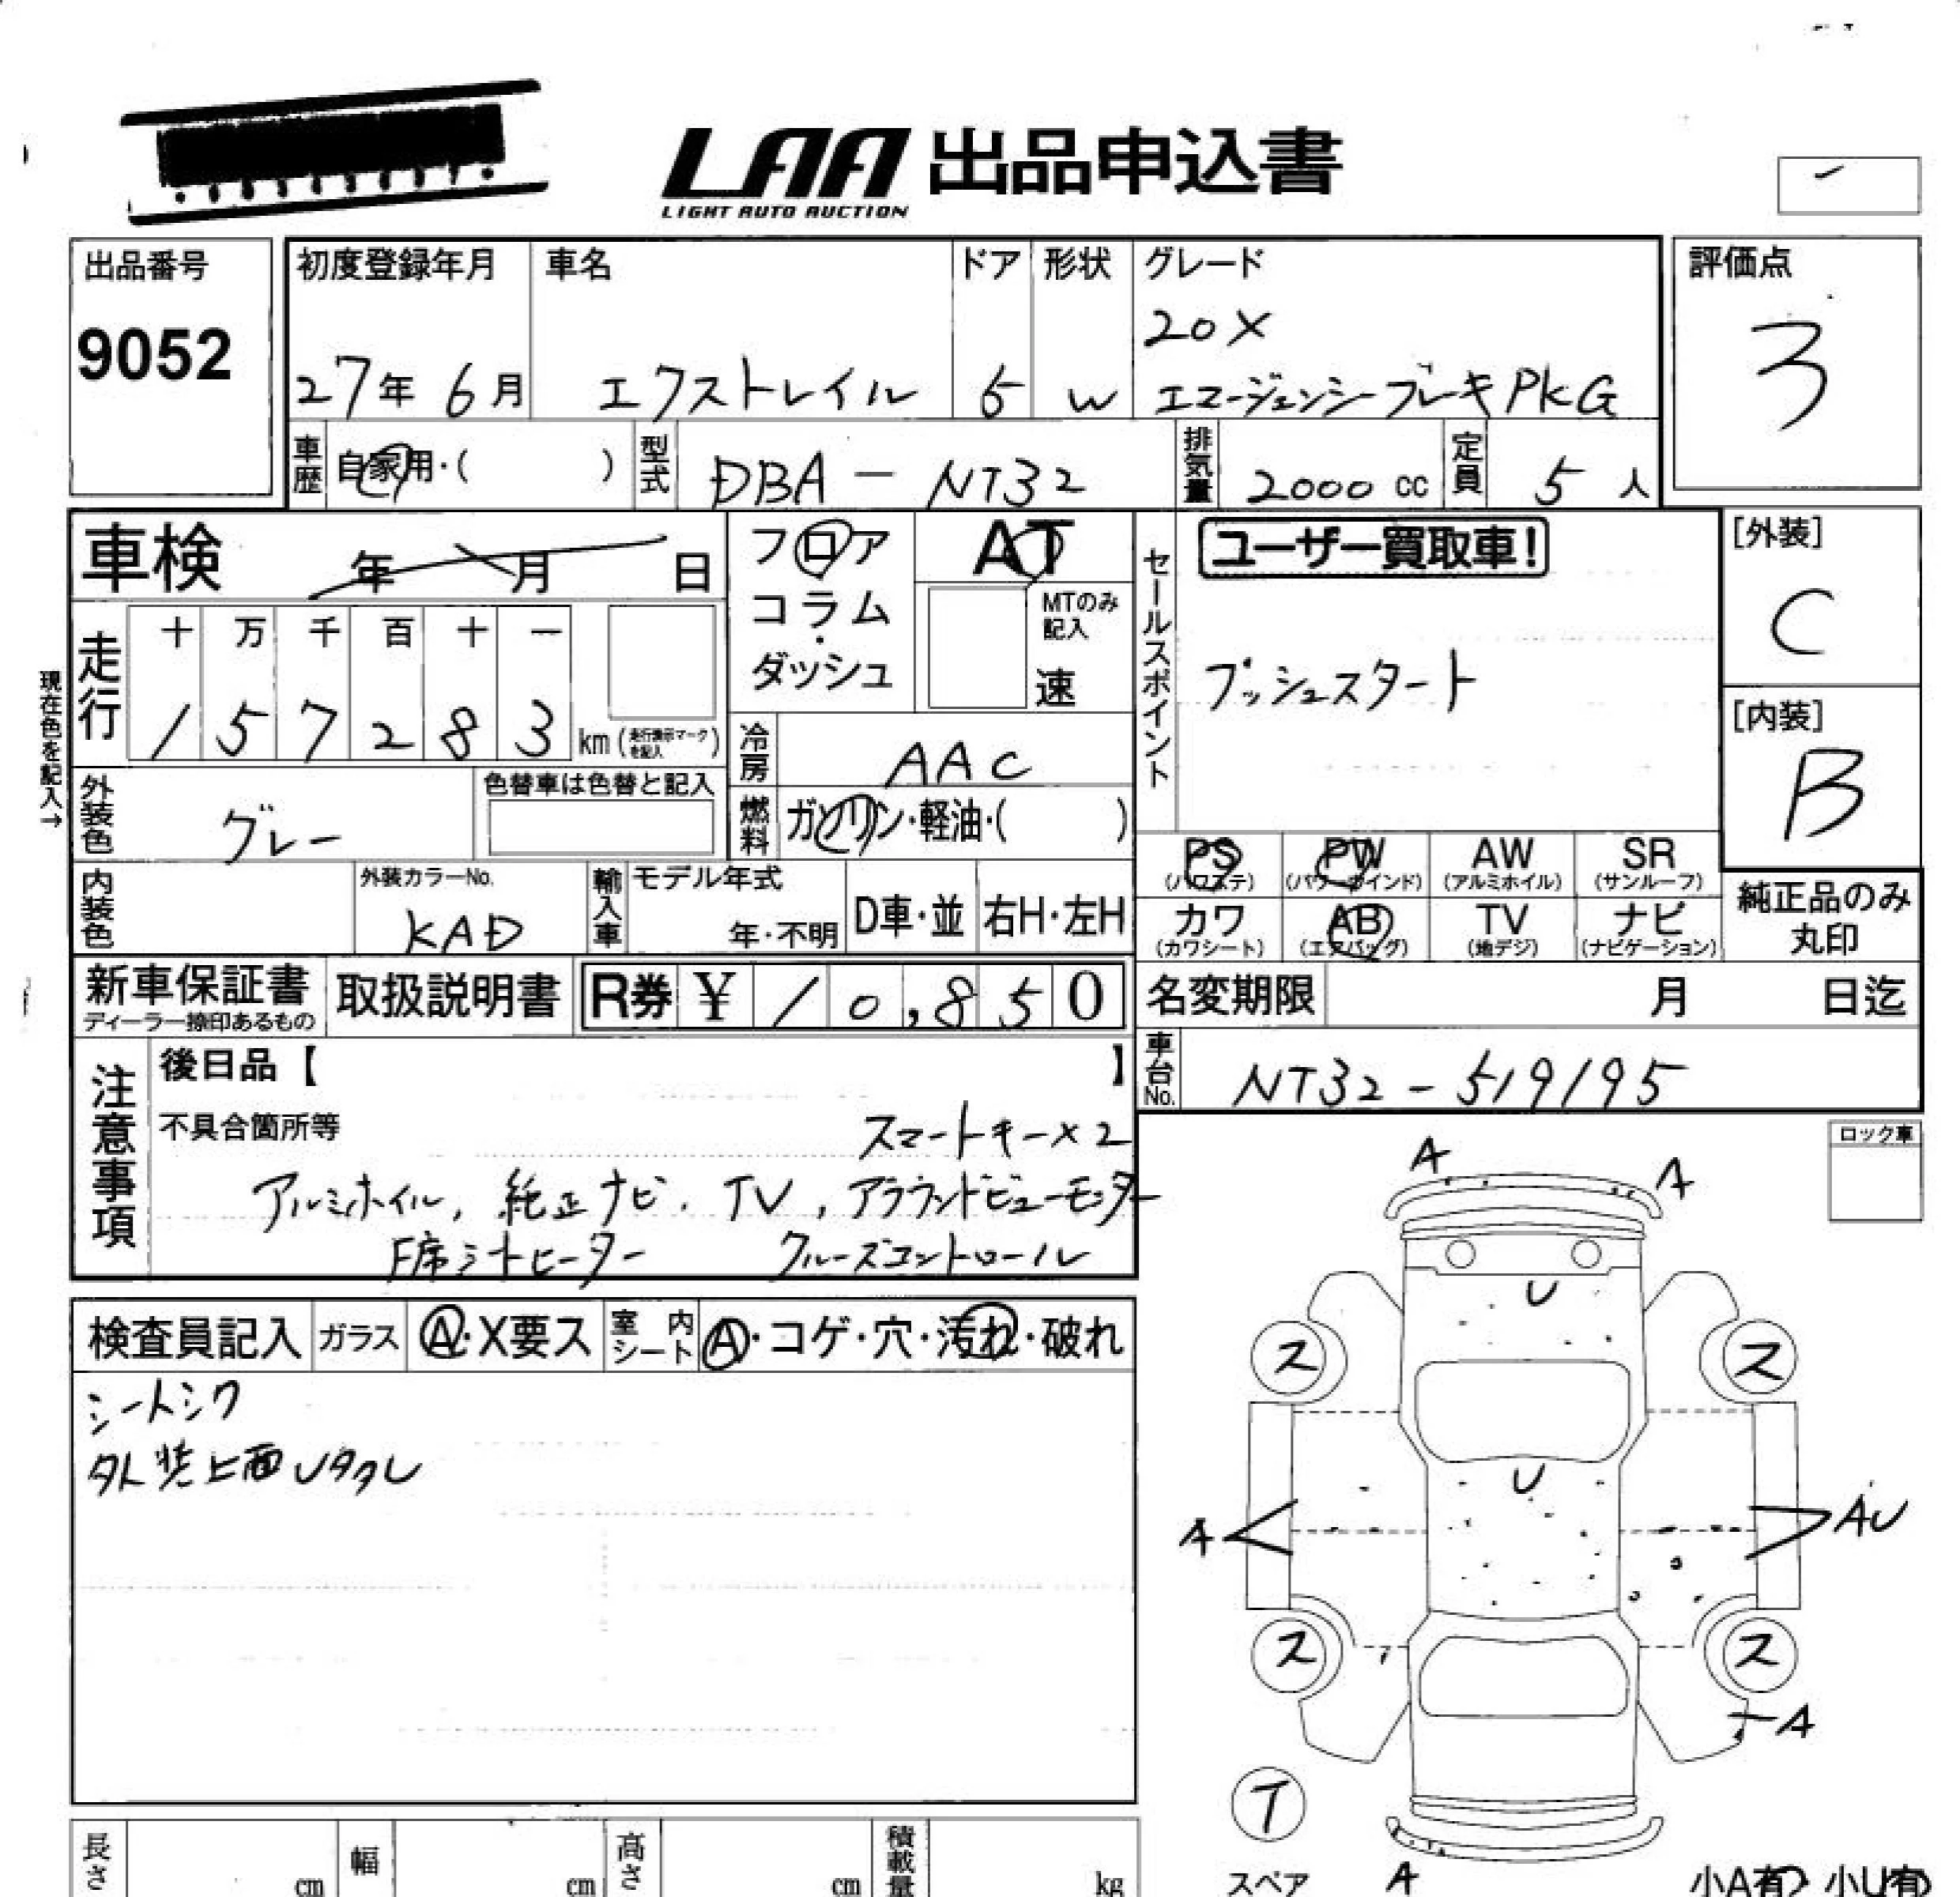 LAA 出品申込書
LIGHT AUTO AUCTION
出品番号
9052
初度登録年月
27年 6月
車名
エクストレイル
ドア
5
形状
W
グレード
20X
エマージェンシーブレーキPKG
評価点
3
車歴
自家用・( )
型式
DBA-NT32
排気量
2000 cc
定員
5 人
車検 年 月 日
フロア
コラム
・
ダッシュ
AT
MTのみ
記入
速
セールスポイント
ユーザー買取車!
プッシュスタート
[外装]
C
[内装]
B
現在色を記入→
走行
十 万 千 百 十 一
1 5 7 2 8 3 km
(走行表示マークを記入)
冷房
AAC
外装色
グレー
色替車は色替と記入
燃料
ガソリン・軽油・( )
PS
(パワステ)
PW
(パワーウインド)
AW
(アルミホイル)
SR
(サンルーフ)
カワ
(カワシート)
AB
(エアバッグ)
TV
(地デジ)
ナビ
(ナビゲーション)
純正品のみ
丸印
内装色
外装カラーNo.
KAD
輸入車
モデル年式
年・不明
D車・並
右H・左H
新車保証書
ディーラー捺印あるもの
取扱説明書
R券 ¥ 10,850
名変期限 月 日迄
車台No.
NT32-519195
注意事項
後日品【 】
不具合箇所等
スマートキー×2
アルミホイル, 純正ナビ, TV, アラウンドビューモニター
F席シートヒーター クルーズコントロール
ロック車
検査員記入
ガラス
A・X要ス
室内シート
A・コゲ・穴・汚れ・破れ
シートシワ
外装上面Uタクレ
A
A
U
ス
ス
U
A
AU
ス
ス
A
T
スペア
A
小A有 小U有
長さ cm
幅 cm
高さ cm
積載量 kg